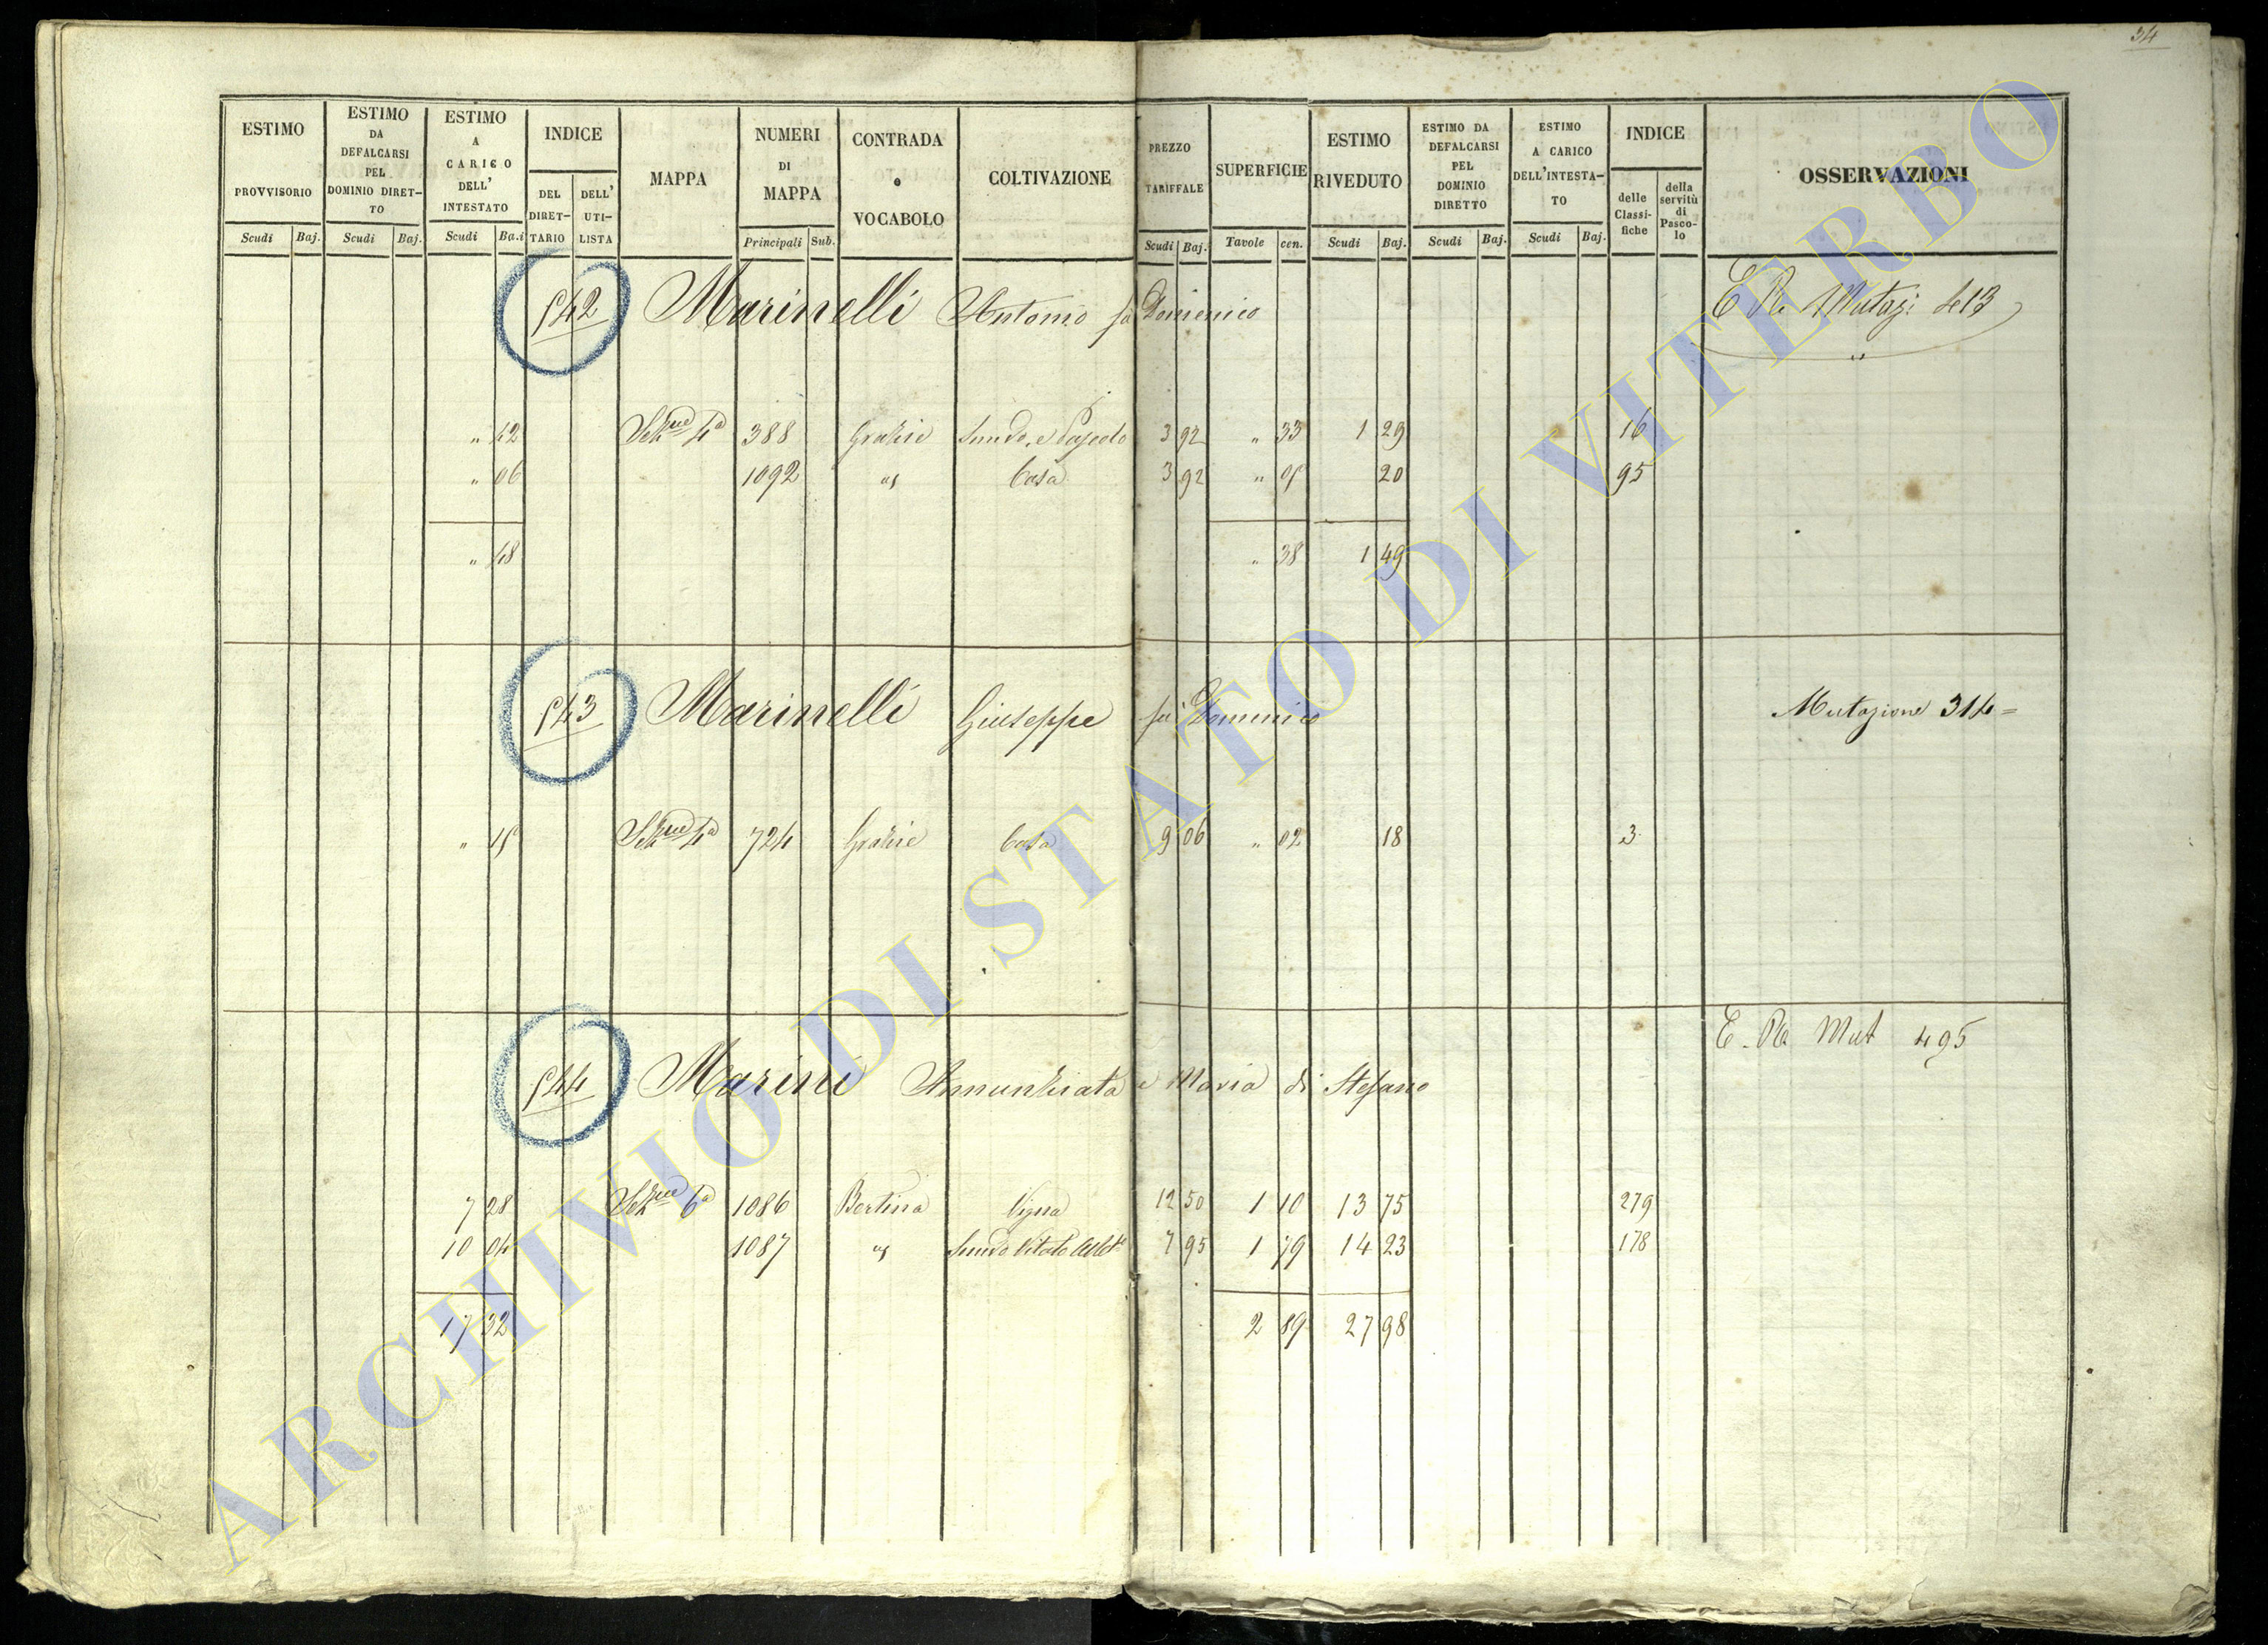 34
ESTIMO PROVVISORIO Scudi Baj.
ESTIMO DA DEFALCARSI PEL DOMINIO DIRET-TO Scudi Baj.
ESTIMO A CARICO DELL' INTESTATO Scudi Ba.i
INDICE DEL DIRET-TARIO DELL' UTI-LISTA
MAPPA
NUMERI DI MAPPA Principali Sub.
CONTRADA o VOCABOLO
COLTIVAZIONE
PREZZO TARIFFALE Scudi Baj.
SUPERFICIE Tavole cen.
ESTIMO RIVEDUTO Scudi Baj.
ESTIMO DA DEFALCARSI PEL DOMINIO DIRETTO Scudi Baj.
ESTIMO A CARICO DELL'INTESTA-TO Scudi Baj.
INDICE delle Classi-fiche della servitù di Pasco-lo
OSSERVAZIONI
542 Marinelli Antonio fu Domenico
" 42 Sezne 4a 388 Grazie 3 92 " 33 1 29 16
" 06 1092 " Casa 3 92 " 05 20 95
" 48 " 38 1 49
543 Marinelli Giuseppe fu Domenico Mutazione 314=
" 15 Sezne 4a 724 Grazie Casa 9 06 " 02 18 3
E. Mut 495
544 Marini Annunziata e Maria di Stefano
7 28 Sezne 6a 1086 Bertina Vigna 12 50 1 10 13 75 279
10 04 1087 " 7 95 1 79 14 23 178
17 32 2 89 27 98
ARCHIVIO DI STATO DI VITERBO